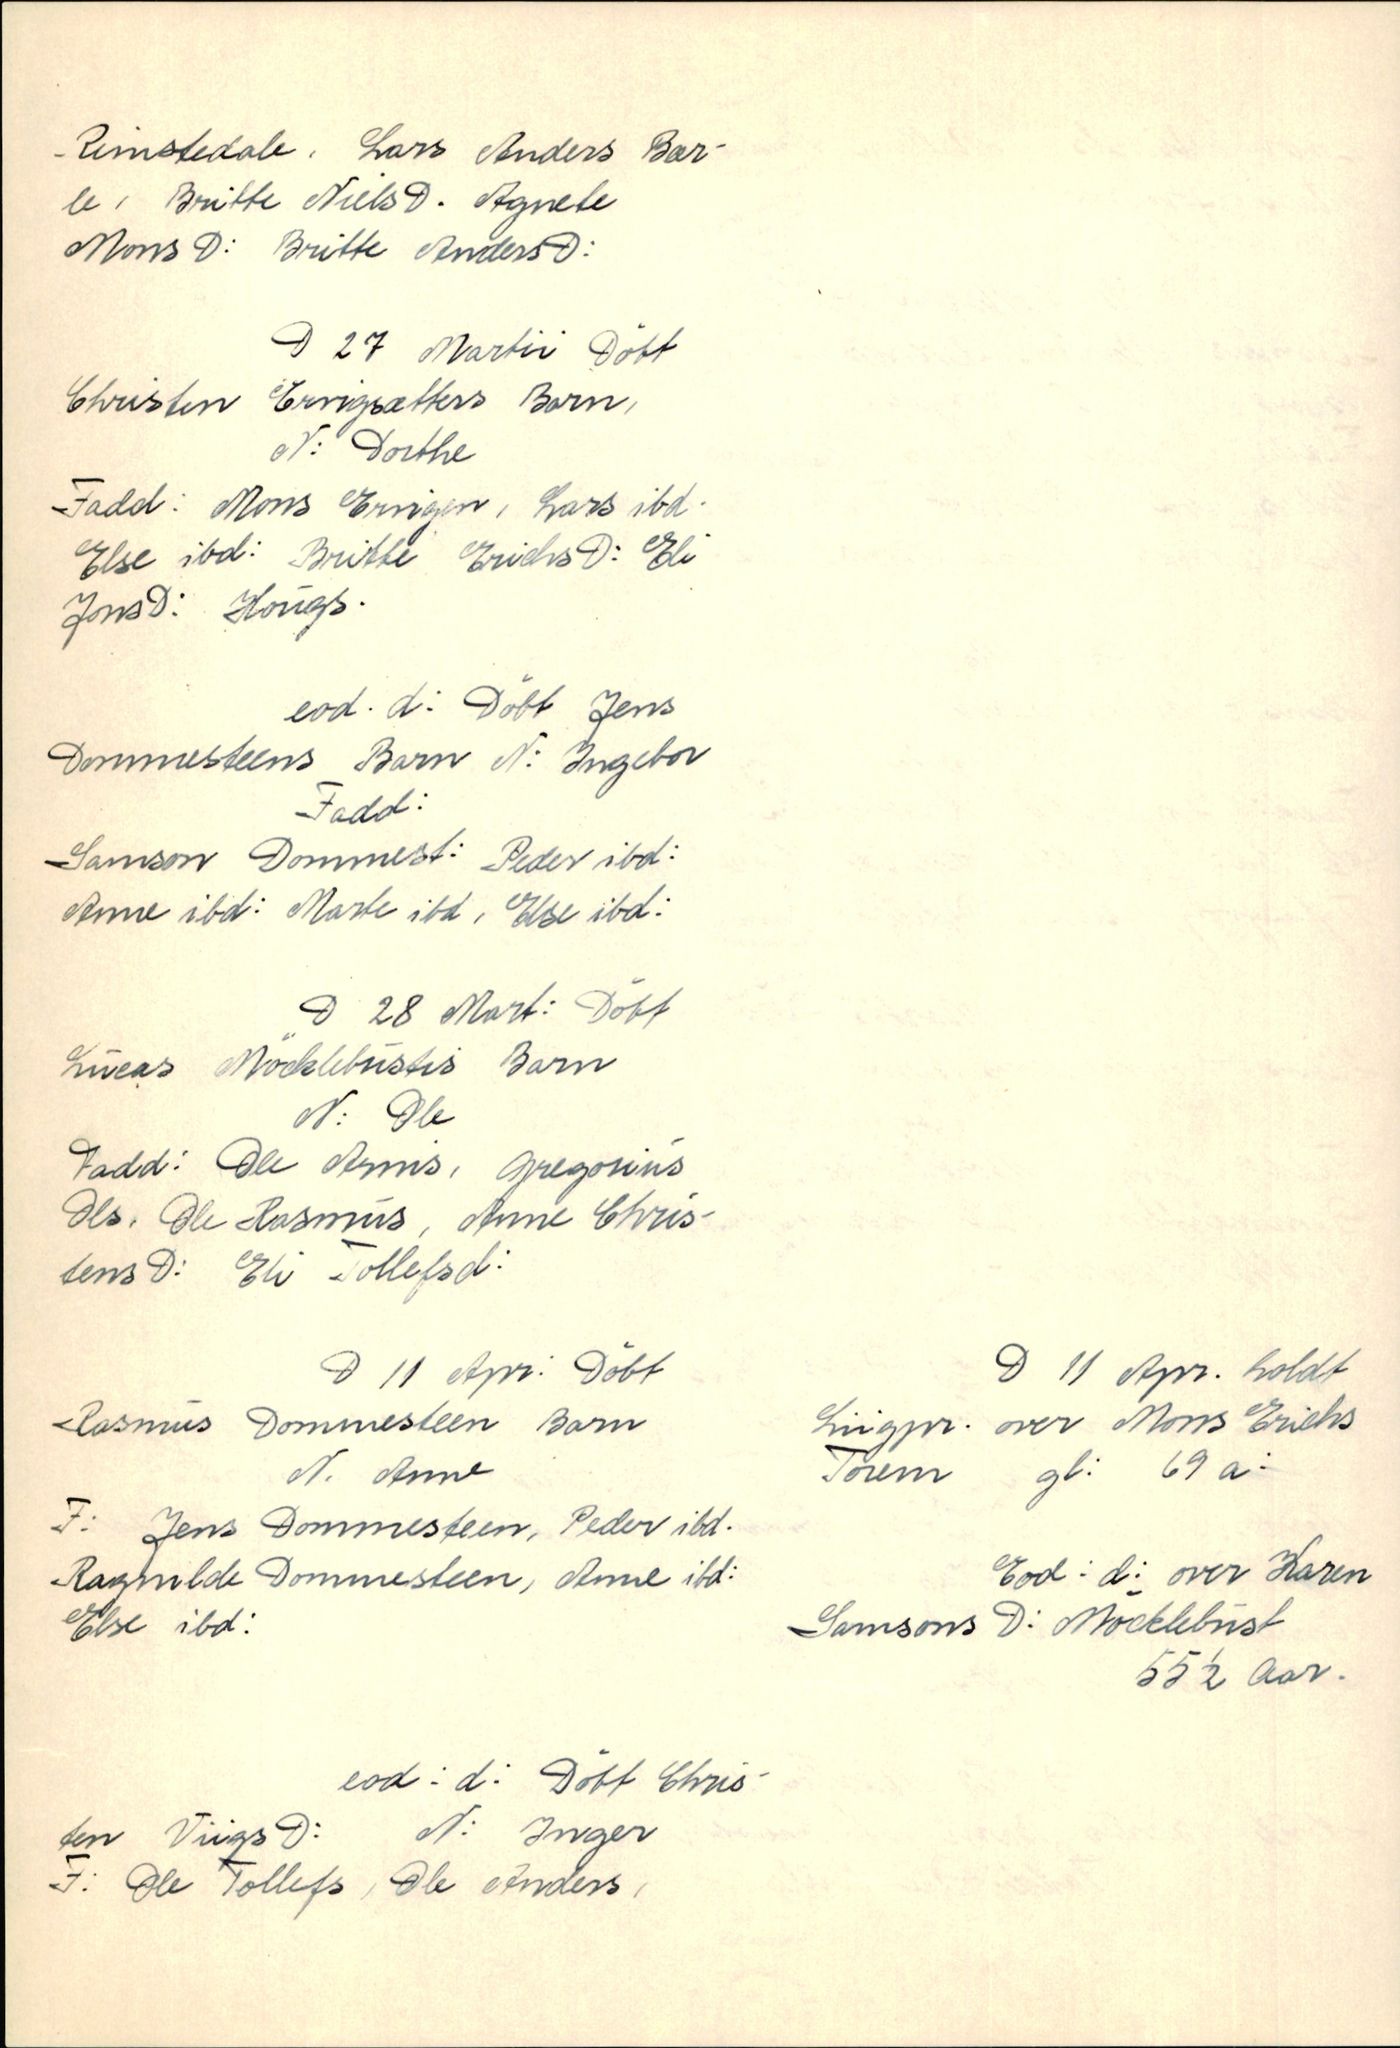 Rimstedale, Lars Anders Bar-
le, Britte NielsD. Agnete
MonsD: Britte AndersD:
D 27 Martii Döbt
Christen Ervigsætters Barn,
N: Dorthe
Fadd: Mons Ervigen, Lars ibd.
Else ibd: Britte ErichsD: Eli
JonsD: Hougs.
eod. d: Döbt Jens
Dommesteens Barn N: Ingebor
Fadd:
Samson Dommest: Peder ibd:
Anne ibd: Marte ibd, Else ibd:
D 28 Mart: Döbt
Lucas Möcklebustis Barn
N: Ole
Fadd: Ole Arnis, Gregorius
Ols, Ole Rasmus, Anne Chris-
tensD: Eli Tollefsd:
D 11 Apr: Döbt
Rasmus Dommesteen Barn
N. Anne
F: Jens Dommesteen, Peder ibd.
Ragnilde Dommesteen, Anne ibd:
Else ibd:
eod: d: Döbt Chris-
ten ViigsD: N: Inger
F: Ole Tollefs, Ole Anders,
D 11 Apr. holdt
Liigpr. over Mons Erichs
Torem gl: 69 a:
Eod: d: over Karen
Samsons D: Möcklebust
55½ Aar.